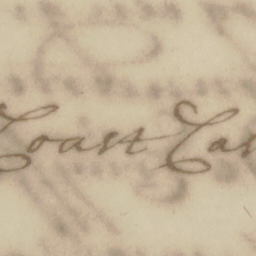 Coast Cas